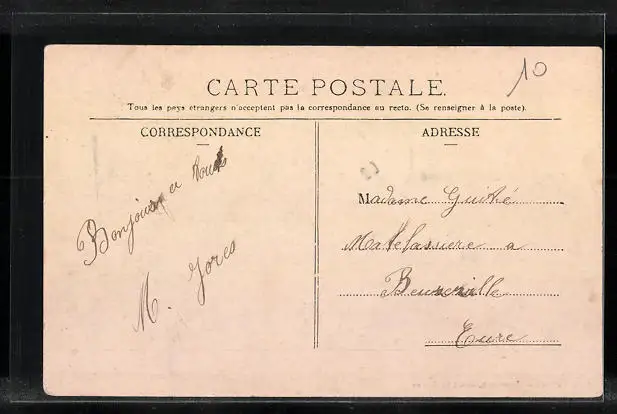 10
CARTE POSTALE.
Tous les pays étrangers n'acceptent pas la correspondance au recto. (Se renseigner à la poste).
CORRESPONDANCE
Bonjour a tous
M. Jores
ADRESSE
Madame Guité
Matelassiere a
Beuzeville
Eure